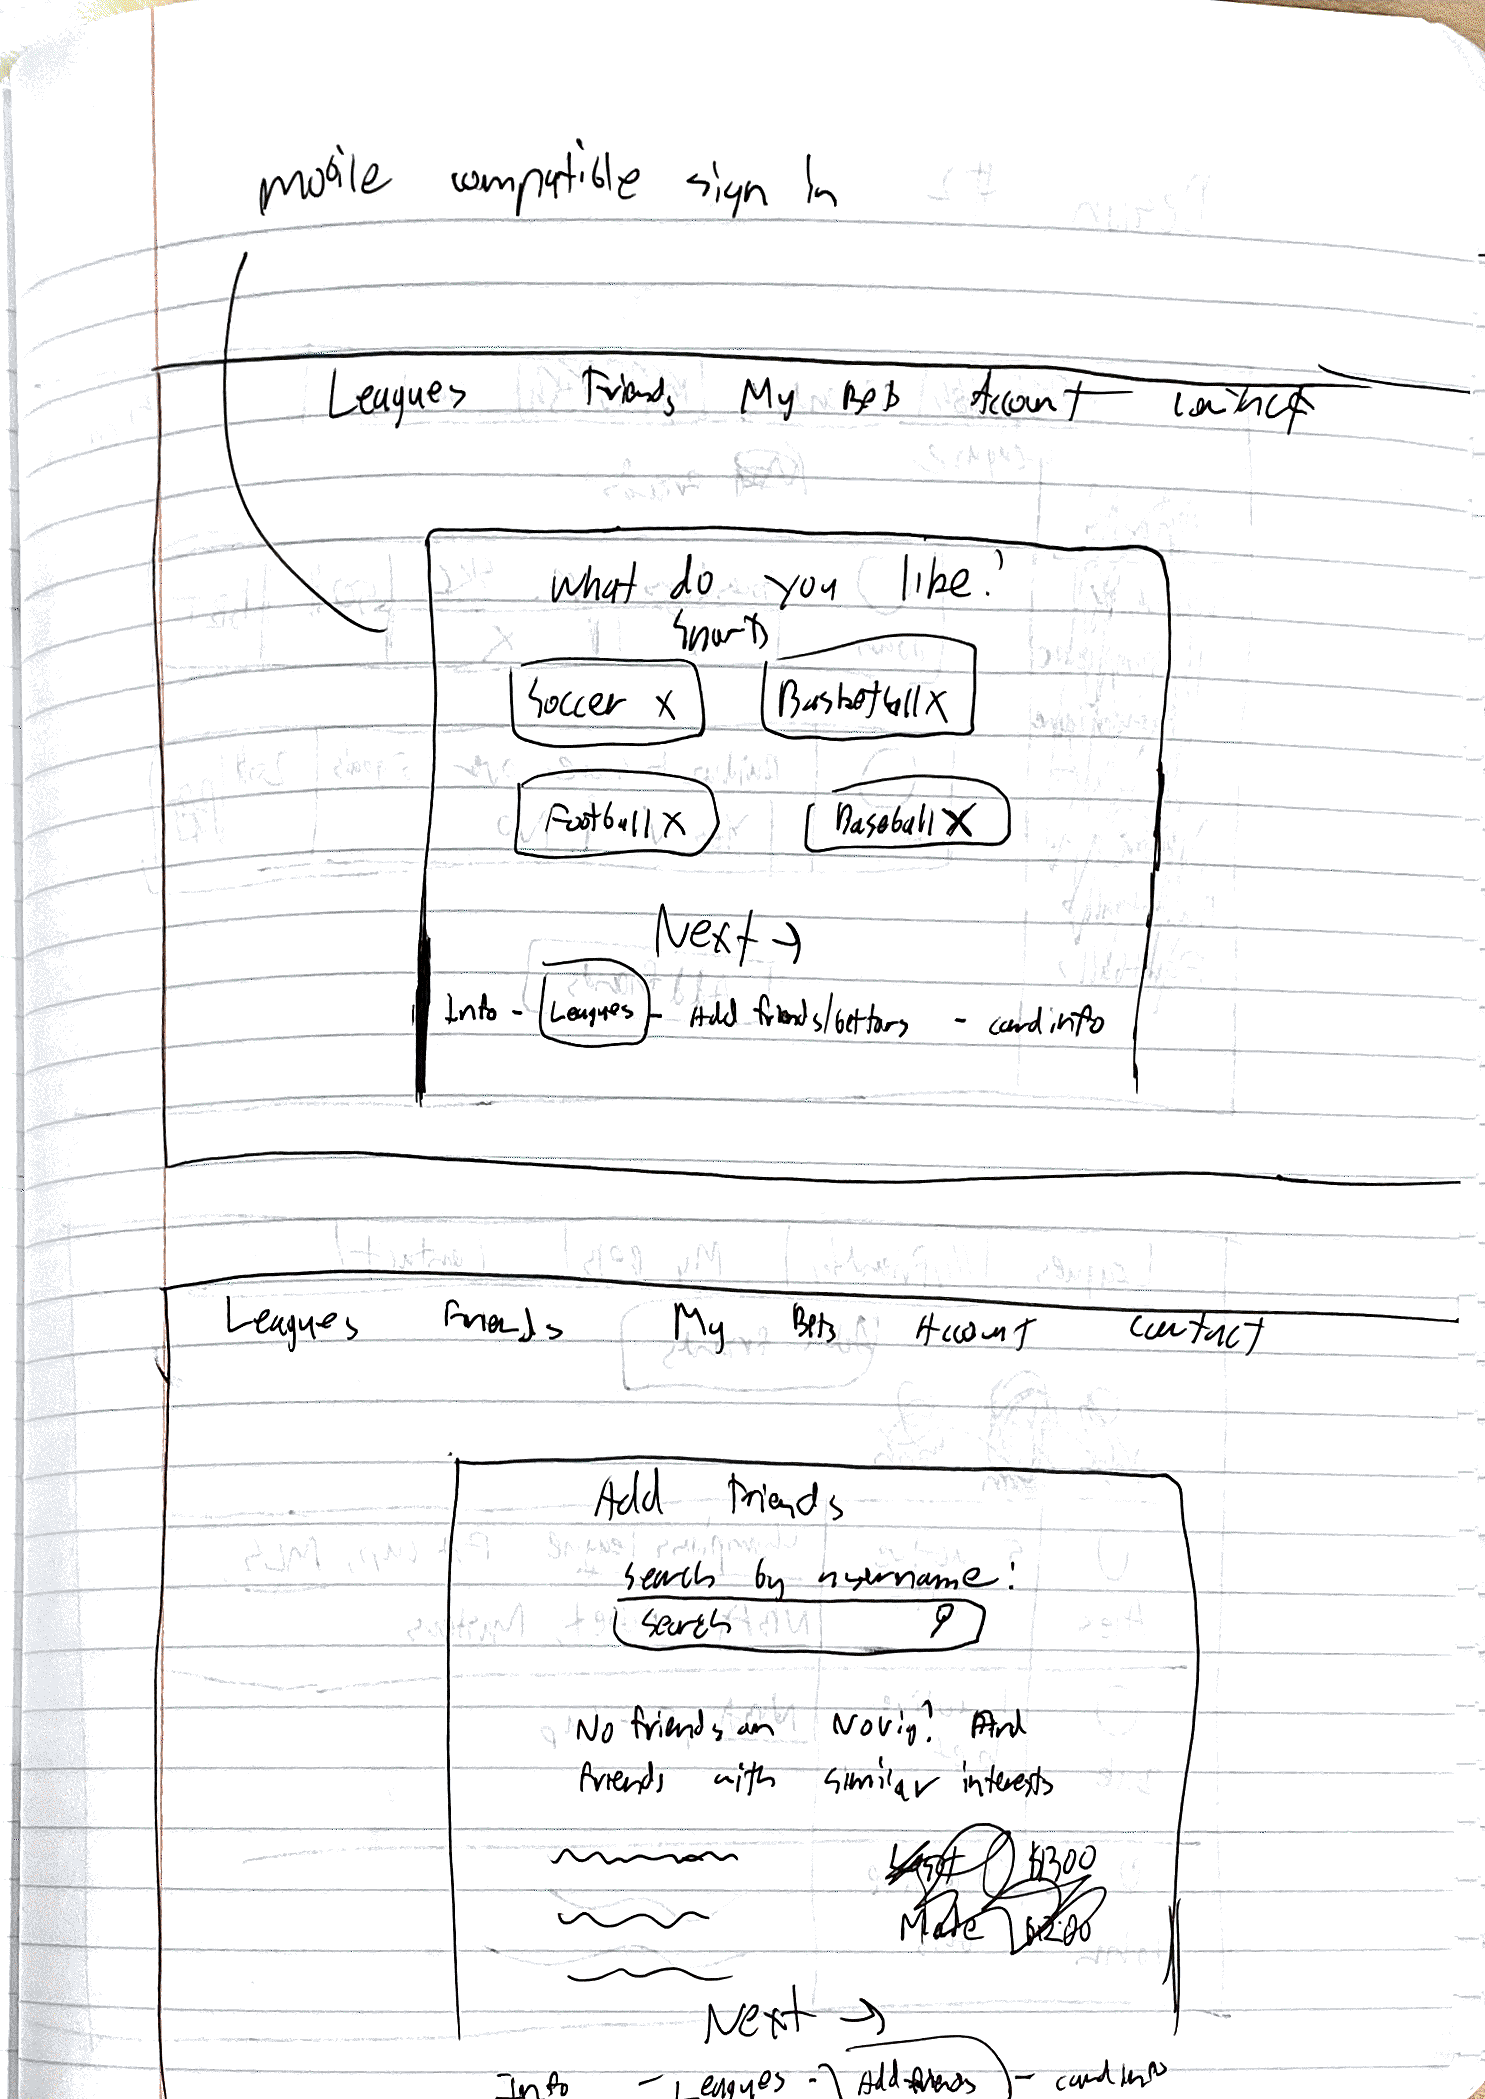 mobile compatible sign in
Leagues Friends My Bets Account Contact
What do you like?
Sports
Soccer X Basketball X
Football X Baseball X
Next →
Info - Leagues - Add friends/bettors - card info
Leagues Friends My Bets Account Contact
Add Friends
Search by username:
Search
No friends on Novig? Add
friends with similar interests
Lost $1300
Made $1200
Next →
Info - Leagues - Add friends - card info